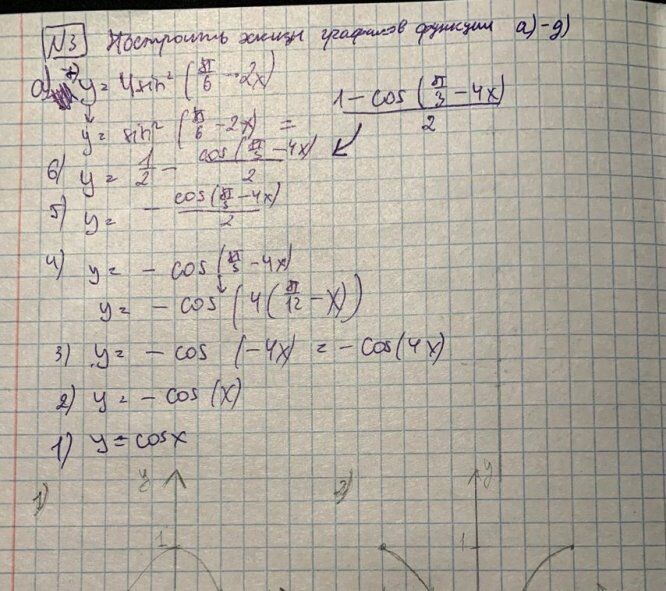 N3 Построить эскизы графиков функции а)-д)
а) 7) y = 4sin² (π/6 - 2x)
y = sin² (π/6 - 2x) = (1 - cos(π/3 - 4x))/2
6) y = 1/2 - cos(π/3 - 4x)/2
5) y = - cos(π/3 - 4x)/2
4) y = - cos(π/3 - 4x)
y = - cos(4(π/12 - x))
3) y = - cos (-4x) = - cos(4x)
2) y = - cos(x)
1) y = cosx
1) y 2) y
1 1